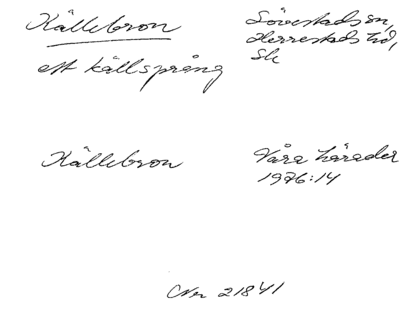 Källebron
Sövestads sn,
Herrestads hd,
Sk
ett källsprång
Källebron
Våra härader
1976:14
21841